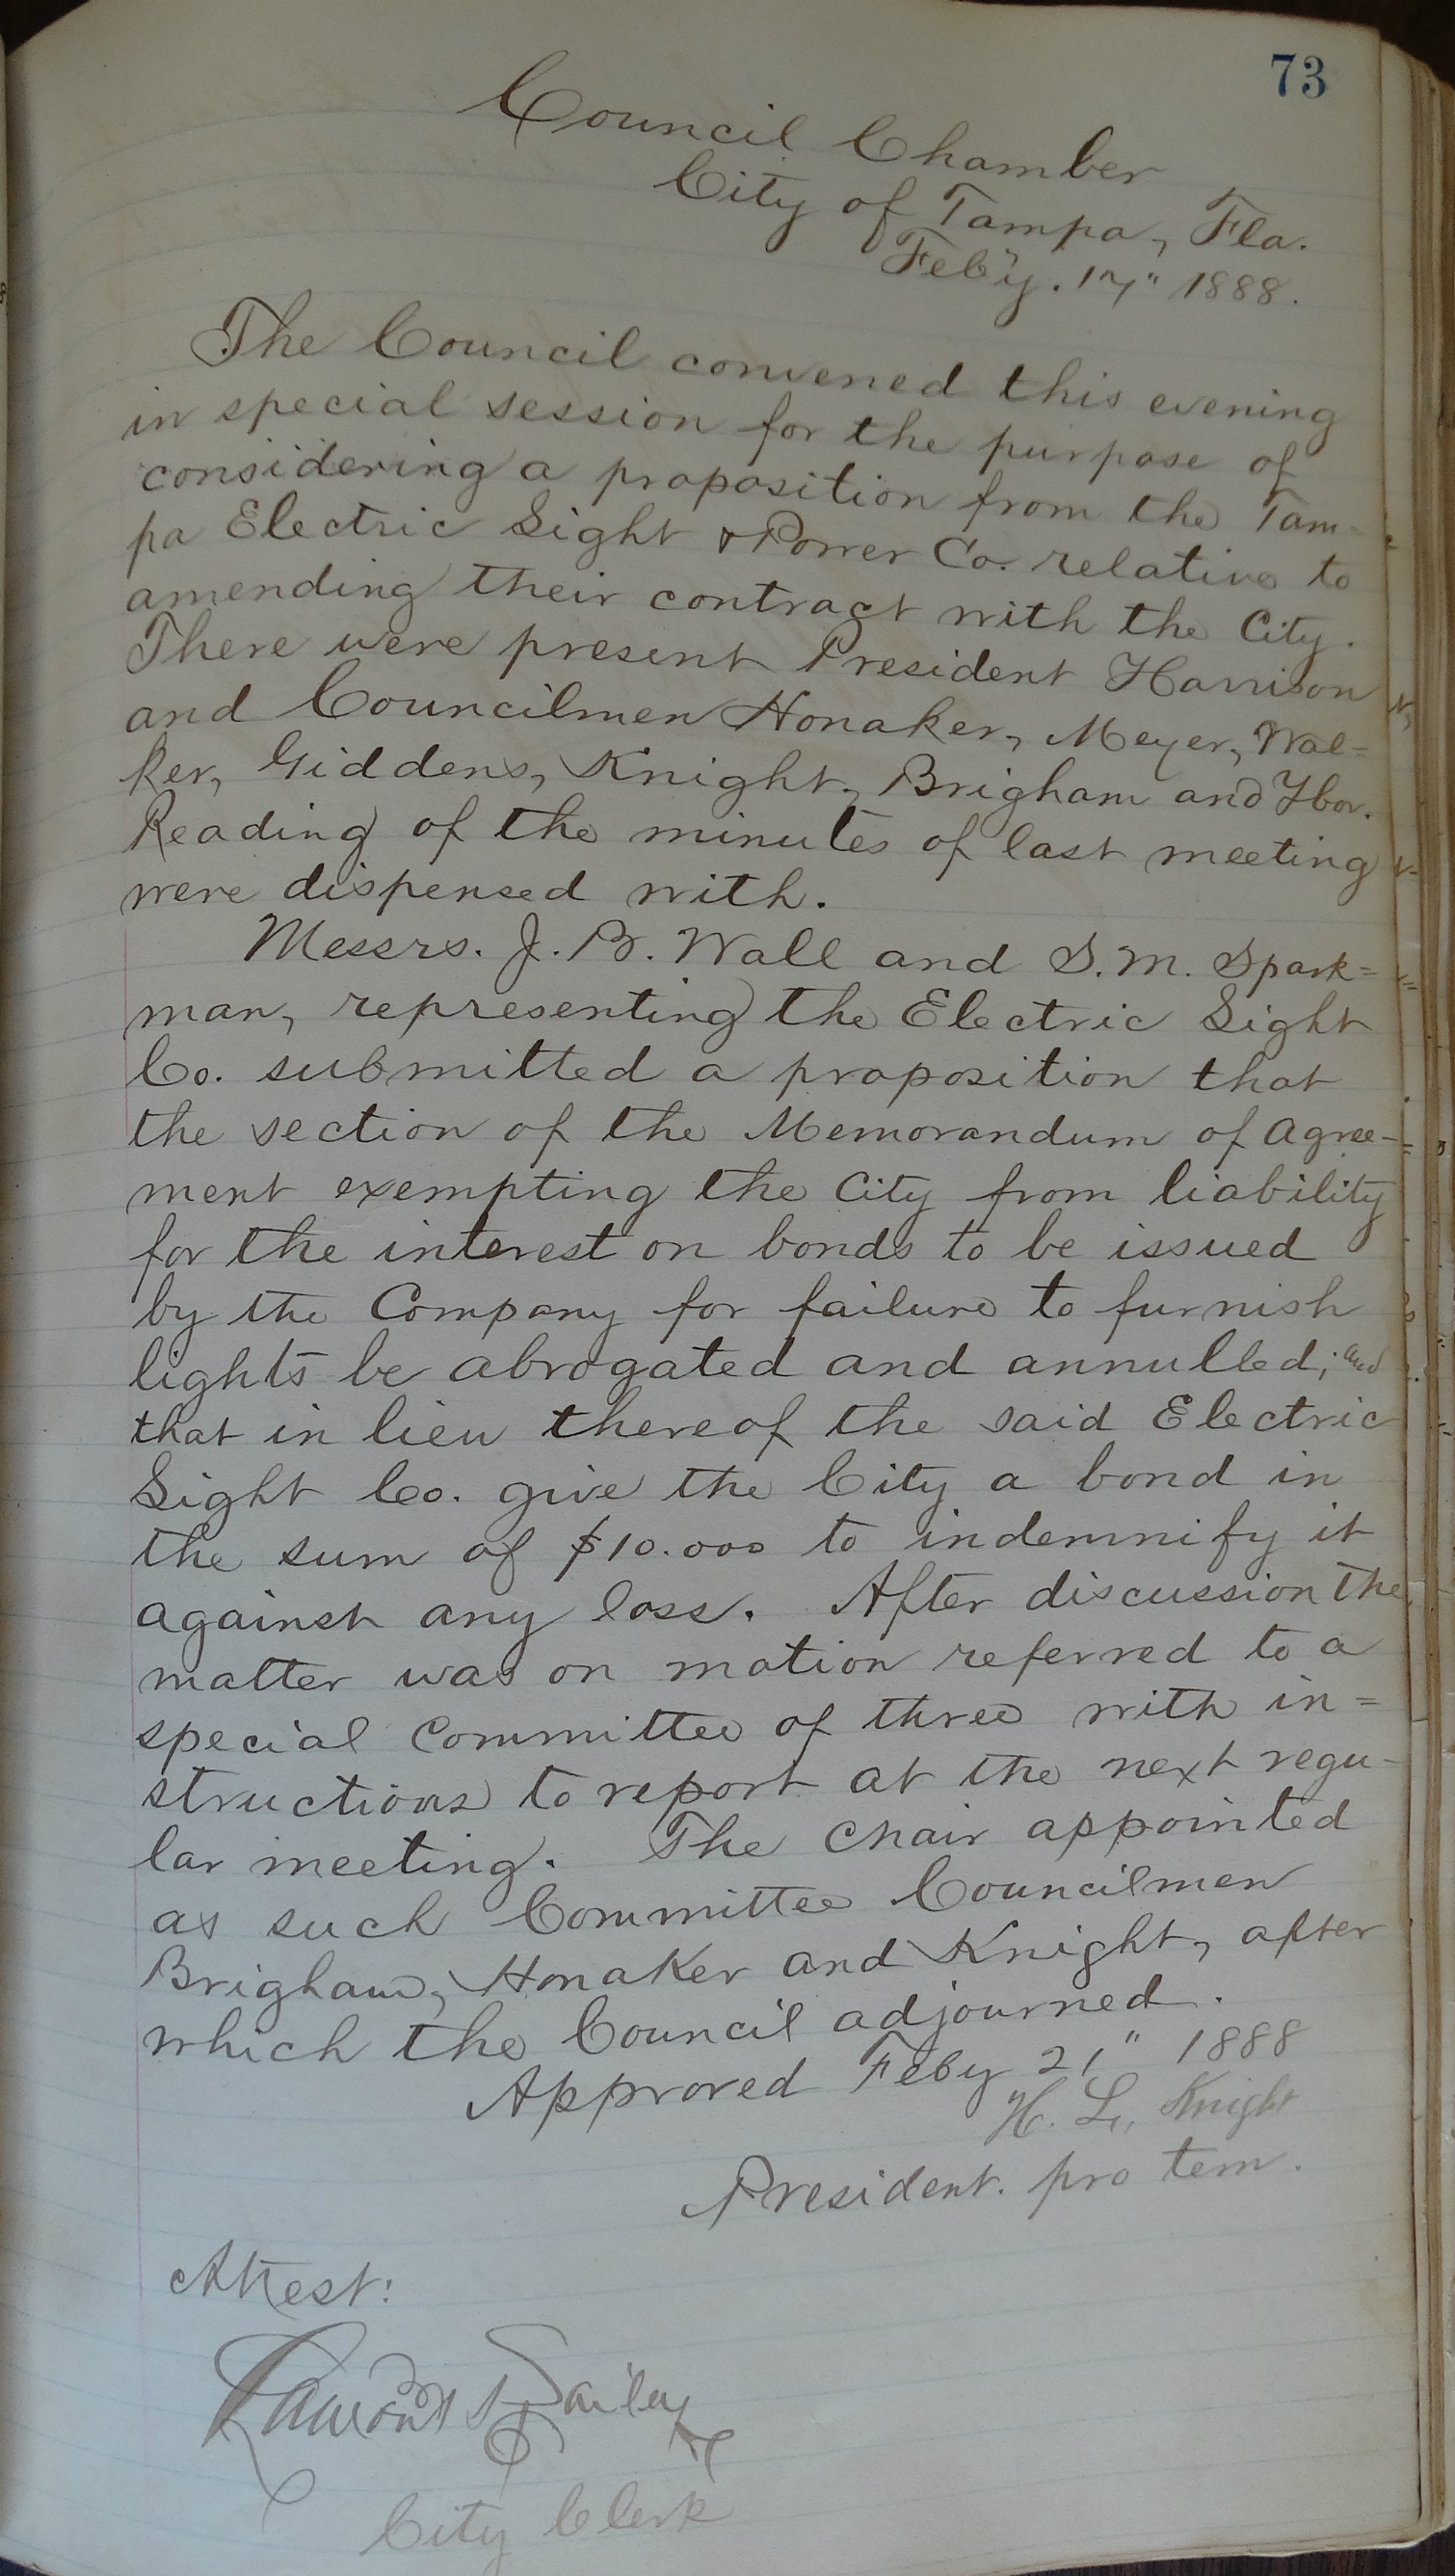 73
Council Chamber
City of Tampa, Fla.
Feb'y. 17" 1888.
The Council convened this evening
in special session for the purpose of
considering a proposition from the Tam-
pa Electric Light & Power Co. relative to
amending their contract with the City.
There were present President Harrison
and Councilmen Honaker, Meyer, Wal=
ker, Giddens, Knight, Brigham and Ybor.
Reading of the minutes of last meeting
were dispensed with.
Messrs. J. B. Wall and S. M. Spark=
man, representing the Electric Light
Co. submitted a proposition that
the section of the Memorandum of Agree-
ment exempting the City from liability
for the interest on bonds to be issued
by the Company for failure to furnish
lights be abrogated and annulled; and
that in lieu thereof the said Electric
Light Co. give the City a bond in
the sum of $10.000 to indemnify it
against any loss. After discussion the
matter was on motion referred to a
special Committee of three with in=
structions to report at the next regu-
lar meeting. The Chair appointed
as such Committee Councilmen
Brigham, Honaker and Knight, after
which the Council adjourned.
Approved Feby 21" 1888
H. L. Knight
President. pro tem.
Attest:
Lamont Bailey
City Clerk